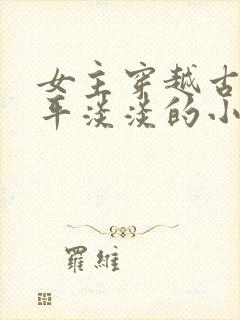 女主穿越古
平淡淡的小
羅維